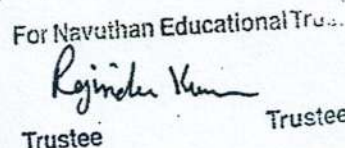 For Navuthan Educational Tru
Rajinder Kumar
Trustee
Trustee